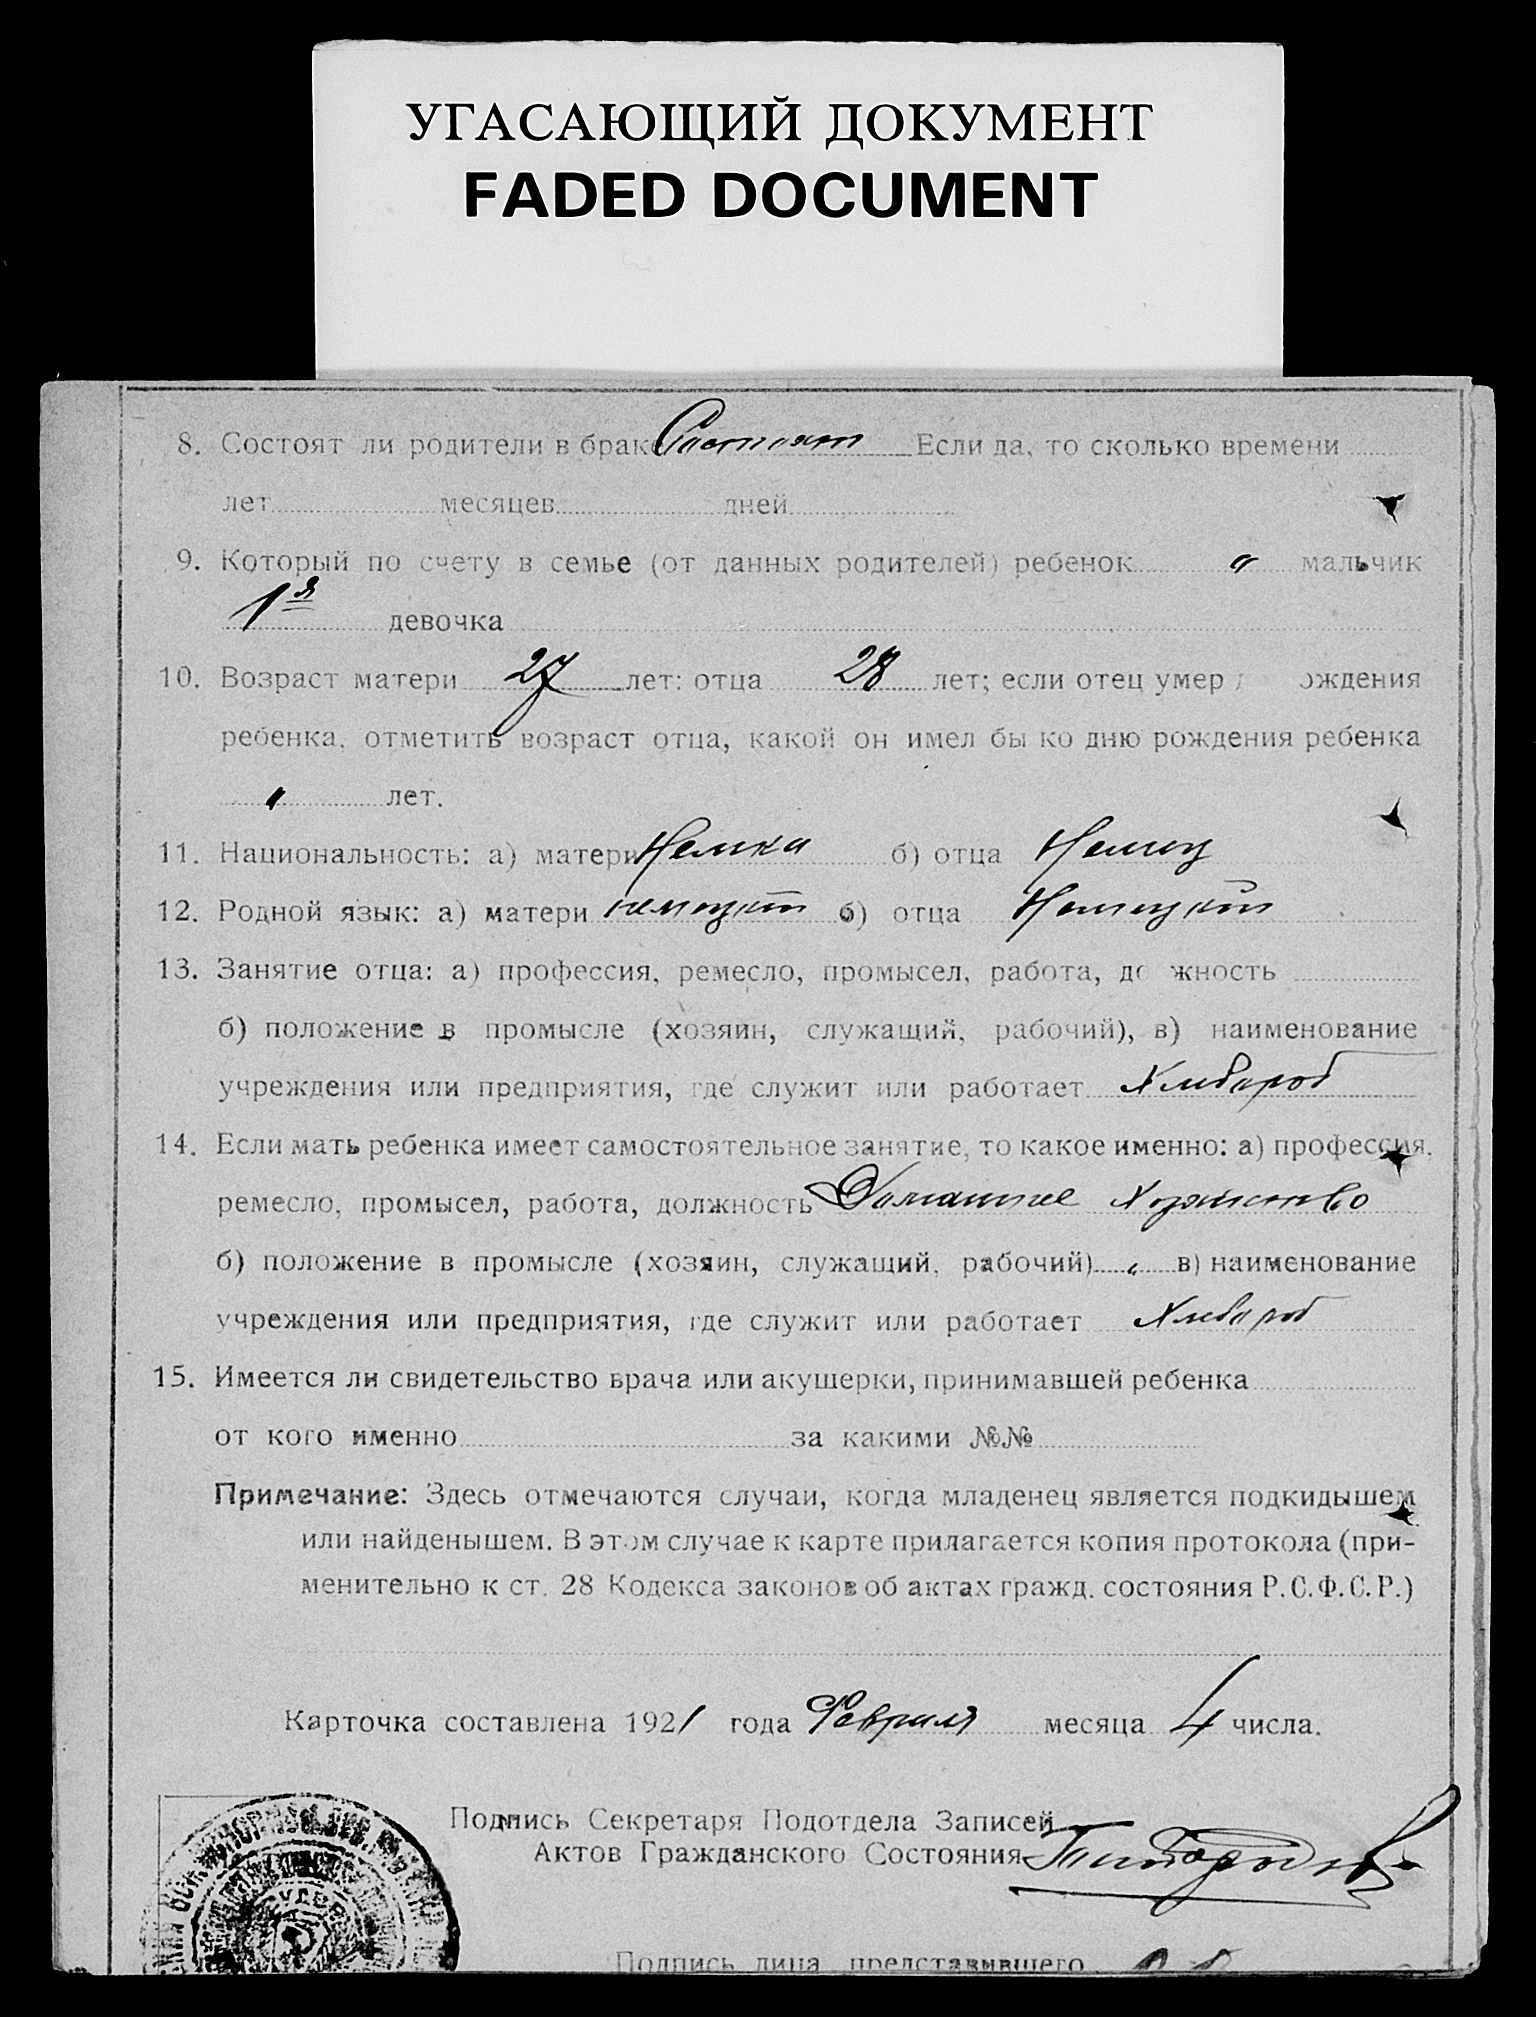 УГАСАЮЩИЙ ДОКУМЕНТ
FADED DOCUMENT
8. Состоят ли родители в браке Состоят Если да, то сколько времени
лет месяцев дней
9. Который по счету в семье (от данных родителей) ребенок " мальчик
1я девочка
10. Возраст матери 27 лет: отца 28 лет; если отец умер ождения
ребенка, отметить возраст отца, какой он имел бы ко дню рождения ребенка
" лет.
11. Национальность: а) матери Немка б) отца Немец
12. Родной язык: а) матери немецкий б) отца Немецкий
13. Занятие отца: а) профессия, ремесло, промысел, работа, до жность
б) положение в промысле (хозяин, служащий, рабочий), в) наименование
учреждения или предприятия, где служит или работает Хлебороб
14. Если мать ребенка имеет самостоятельное занятие, то какое именно: а) профессия,
ремесло, промысел, работа, должность Домашнее Хозяйство
б) положение в промысле (хозяин, служащий, рабочий) " в) наименование
учреждения или предприятия, где служит или работает Хлебороб
15. Имеется ли свидетельство врача или акушерки, принимавшей ребенка
от кого именно за какими №№
Примечание: Здесь отмечаются случаи, когда младенец является подкидышем
или найденышем. В этом случае к карте прилагается копия протокола (при-
менительно к ст. 28 Кодекса законов об актах гражд. состояния Р.С.Ф.С.Р.)
Карточка составлена 1921 года Февраля месяца 4 числа.
Подпись Секретаря Подотдела Записей
Актов Гражданского Состояния
Подпись лица представившего